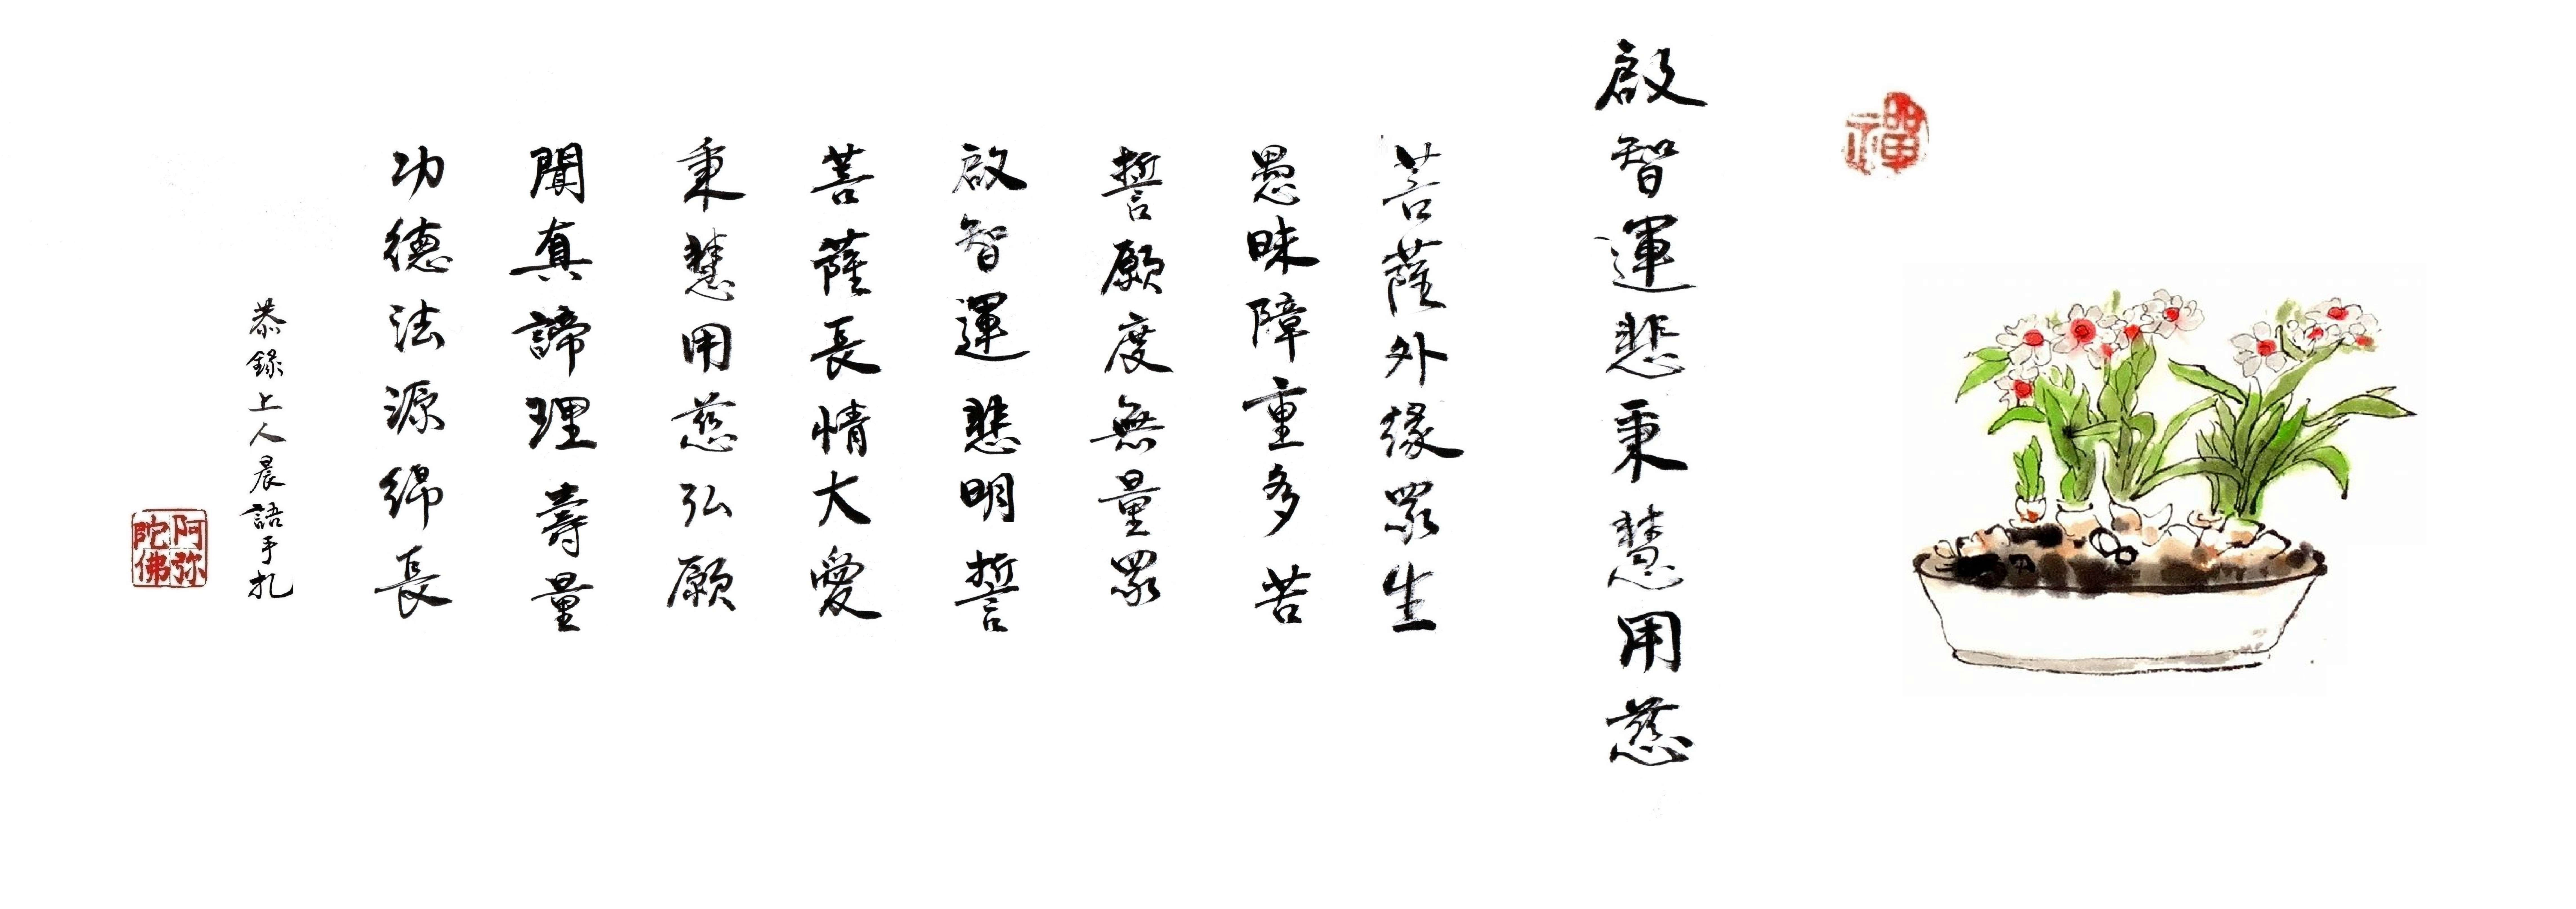 禪
啟智運悲秉慧用慈
菩薩外緣眾生
愚昧障重多苦
誓願度無量眾
啟智運悲明誓
菩薩長情大愛
秉慧用慈弘願
聞真諦理壽量
功德法源綿長
恭錄上人晨語手扎
阿弥陀佛